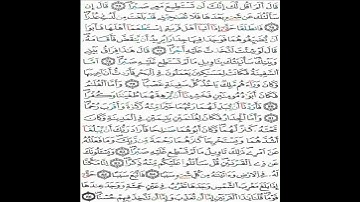 قَالَ أَلَمْ أَقُل لَّكَ إِنَّكَ لَن تَسْتَطِيعَ مَعِيَ صَبْرًا ۝ قَالَ إِن
سَأَلْتُكَ عَن شَيْءٍ بَعْدَهَا فَلَا تُصَاحِبْنِي قَدْ بَلَغْتَ مِن لَّدُنِّي عُذْرًا ۝
فَانطَلَقَا حَتَّىٰ إِذَا أَتَيَا أَهْلَ قَرْيَةٍ اسْتَطْعَمَا أَهْلَهَا فَأَبَوْا
أَن يُضَيِّفُوهُمَا فَوَجَدَا فِيهَا جِدَارًا يُرِيدُ أَن يَنقَضَّ فَأَقَامَهُ
قَالَ لَوْ شِئْتَ لَتَّخَذْتَ عَلَيْهِ أَجْرًا ۝ قَالَ هَٰذَا فِرَاقُ بَيْنِي
وَبَيْنِكَ سَأُنَبِّئُكَ بِتَأْوِيلِ مَا لَمْ تَسْتَطِع عَّلَيْهِ صَبْرًا ۝ أَمَّا
السَّفِينَةُ فَكَانَتْ لِمَسَاكِينَ يَعْمَلُونَ فِي الْبَحْرِ فَأَرَدتُّ أَنْ أَعِيبَهَا
وَكَانَ وَرَاءَهُم مَّلِكٌ يَأْخُذُ كُلَّ سَفِينَةٍ غَصْبًا ۝ وَأَمَّا الْغُلَامُ
فَكَانَ أَبَوَاهُ مُؤْمِنَيْنِ فَخَشِينَا أَن يُرْهِقَهُمَا طُغْيَانًا وَكُفْرًا ۝
فَأَرَدْنَا أَن يُبْدِلَهُمَا رَبُّهُمَا خَيْرًا مِّنْهُ زَكَاةً وَأَقْرَبَ رُحْمًا ۝
وَأَمَّا الْجِدَارُ فَكَانَ لِغُلَامَيْنِ يَتِيمَيْنِ فِي الْمَدِينَةِ وَكَانَ
تَحْتَهُ كَنزٌ لَّهُمَا وَكَانَ أَبُوهُمَا صَالِحًا فَأَرَادَ رَبُّكَ أَن يَبْلُغَا
أَشُدَّهُمَا وَيَسْتَخْرِجَا كَنزَهُمَا رَحْمَةً مِّن رَّبِّكَ وَمَا فَعَلْتُهُ
عَنْ أَمْرِي ذَٰلِكَ تَأْوِيلُ مَا لَمْ تَسْطِع عَّلَيْهِ صَبْرًا ۝ وَيَسْأَلُونَكَ
عَن ذِي الْقَرْنَيْنِ قُلْ سَأَتْلُو عَلَيْكُم مِّنْهُ ذِكْرًا ۝ إِنَّا مَكَّنَّا
لَهُ فِي الْأَرْضِ وَآتَيْنَاهُ مِن كُلِّ شَيْءٍ سَبَبًا ۝ فَأَتْبَعَ سَبَبًا ۝
حَتَّىٰ إِذَا بَلَغَ مَغْرِبَ الشَّمْسِ وَجَدَهَا تَغْرُبُ فِي عَيْنٍ حَمِئَةٍ وَوَجَدَ عِندَهَا
قَوْمًا قُلْنَا يَا ذَا الْقَرْنَيْنِ إِمَّا أَن تُعَذِّبَ وَإِمَّا أَن تَتَّخِذَ فِيهِمْ حُسْنًا ۝